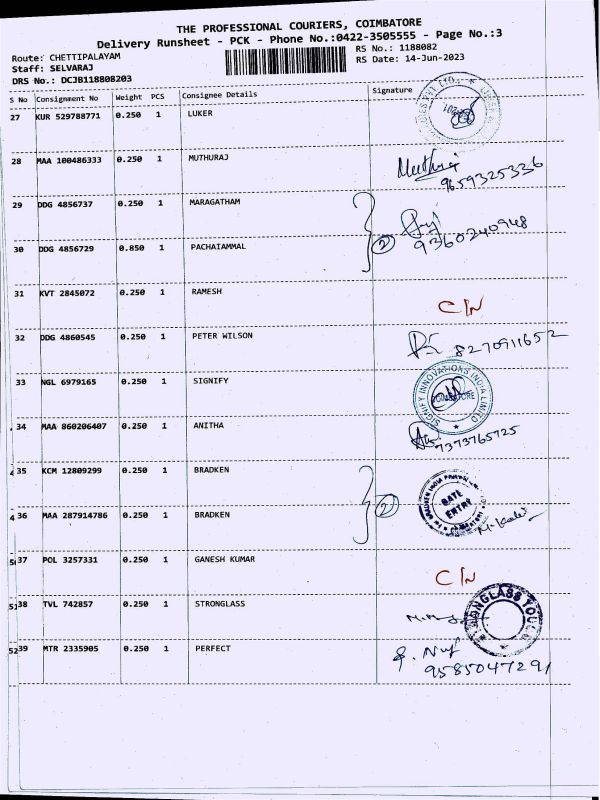 THE PROFESSIONAL COURIERS, COIMBATORE
Delivery Runsheet - PCK - Phone No.:0422-3505555 - Page No.:3
Route: CHETTIPALAYAM
Staff: SELVARAJ
DRS No.: DCJB118808203
RS No.: 1188082
RS Date: 14-Jun-2023
S No Consignment No Weight PCS Consignee Details Signature
27 KUR 529788771 0.250 1 LUKER
28 MAA 100486333 0.250 1 MUTHURAJ Muthuraj
9659325336
29 DDG 4856737 0.250 1 MARAGATHAM
30 DDG 4856729 0.850 1 PACHAIAMMAL 2 9360240948
31 KVT 2845072 0.250 1 RAMESH C/N
32 DDG 4860545 0.250 1 PETER WILSON 8270911652
33 NGL 6979165 0.250 1 SIGNIFY SIGNIFY INNOVATIONS INDIA LIMITED
COIMBATORE
34 MAA 860206407 0.250 1 ANITHA 7373765725
35 KCM 12809299 0.250 1 BRADKEN
36 MAA 287914786 0.250 1 BRADKEN 2 GATE ENTRY
37 POL 3257331 0.250 1 GANESH KUMAR C/N
38 TVL 742857 0.250 1 STRONGLASS
39 MTR 2335905 0.250 1 PERFECT
9585047291